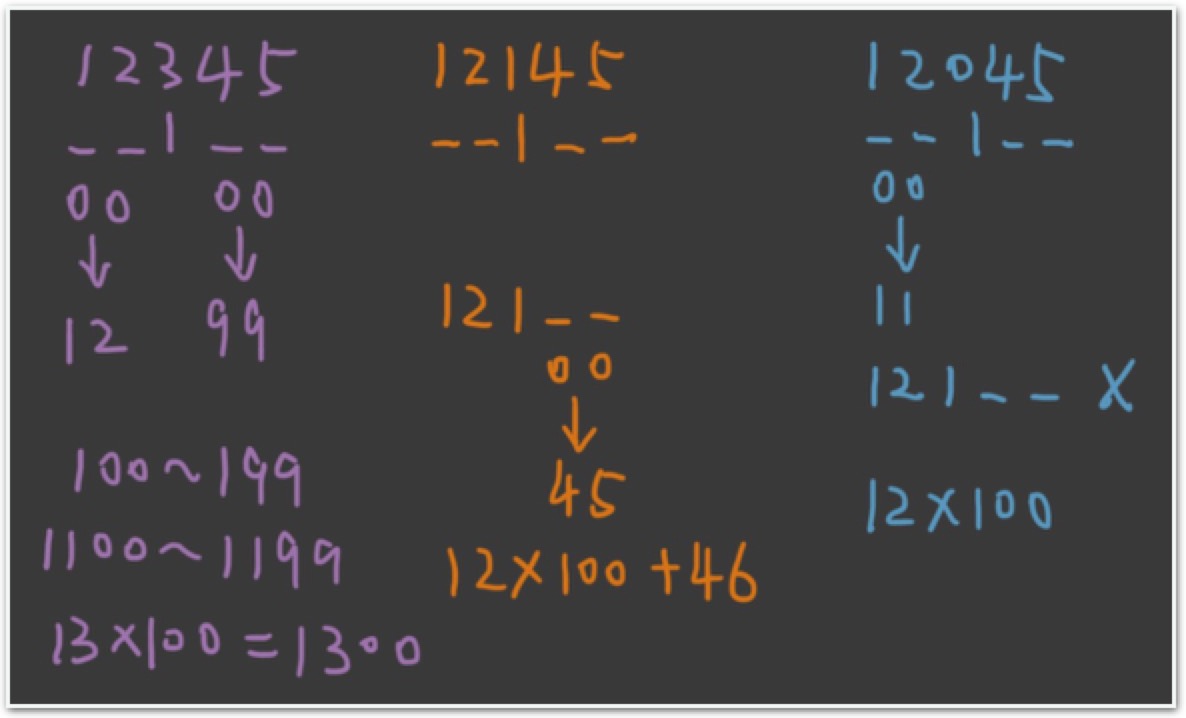 12345
_ _ 1 _ _
00 00
↓ ↓
12 99
100~199
1100~1199
13×100=1300
12145
_ _ 1 _ _
121 _ _
00
↓
45
12×100+46
12045
_ _ 1 _ _
00
↓
11
121 _ _ X
12×100